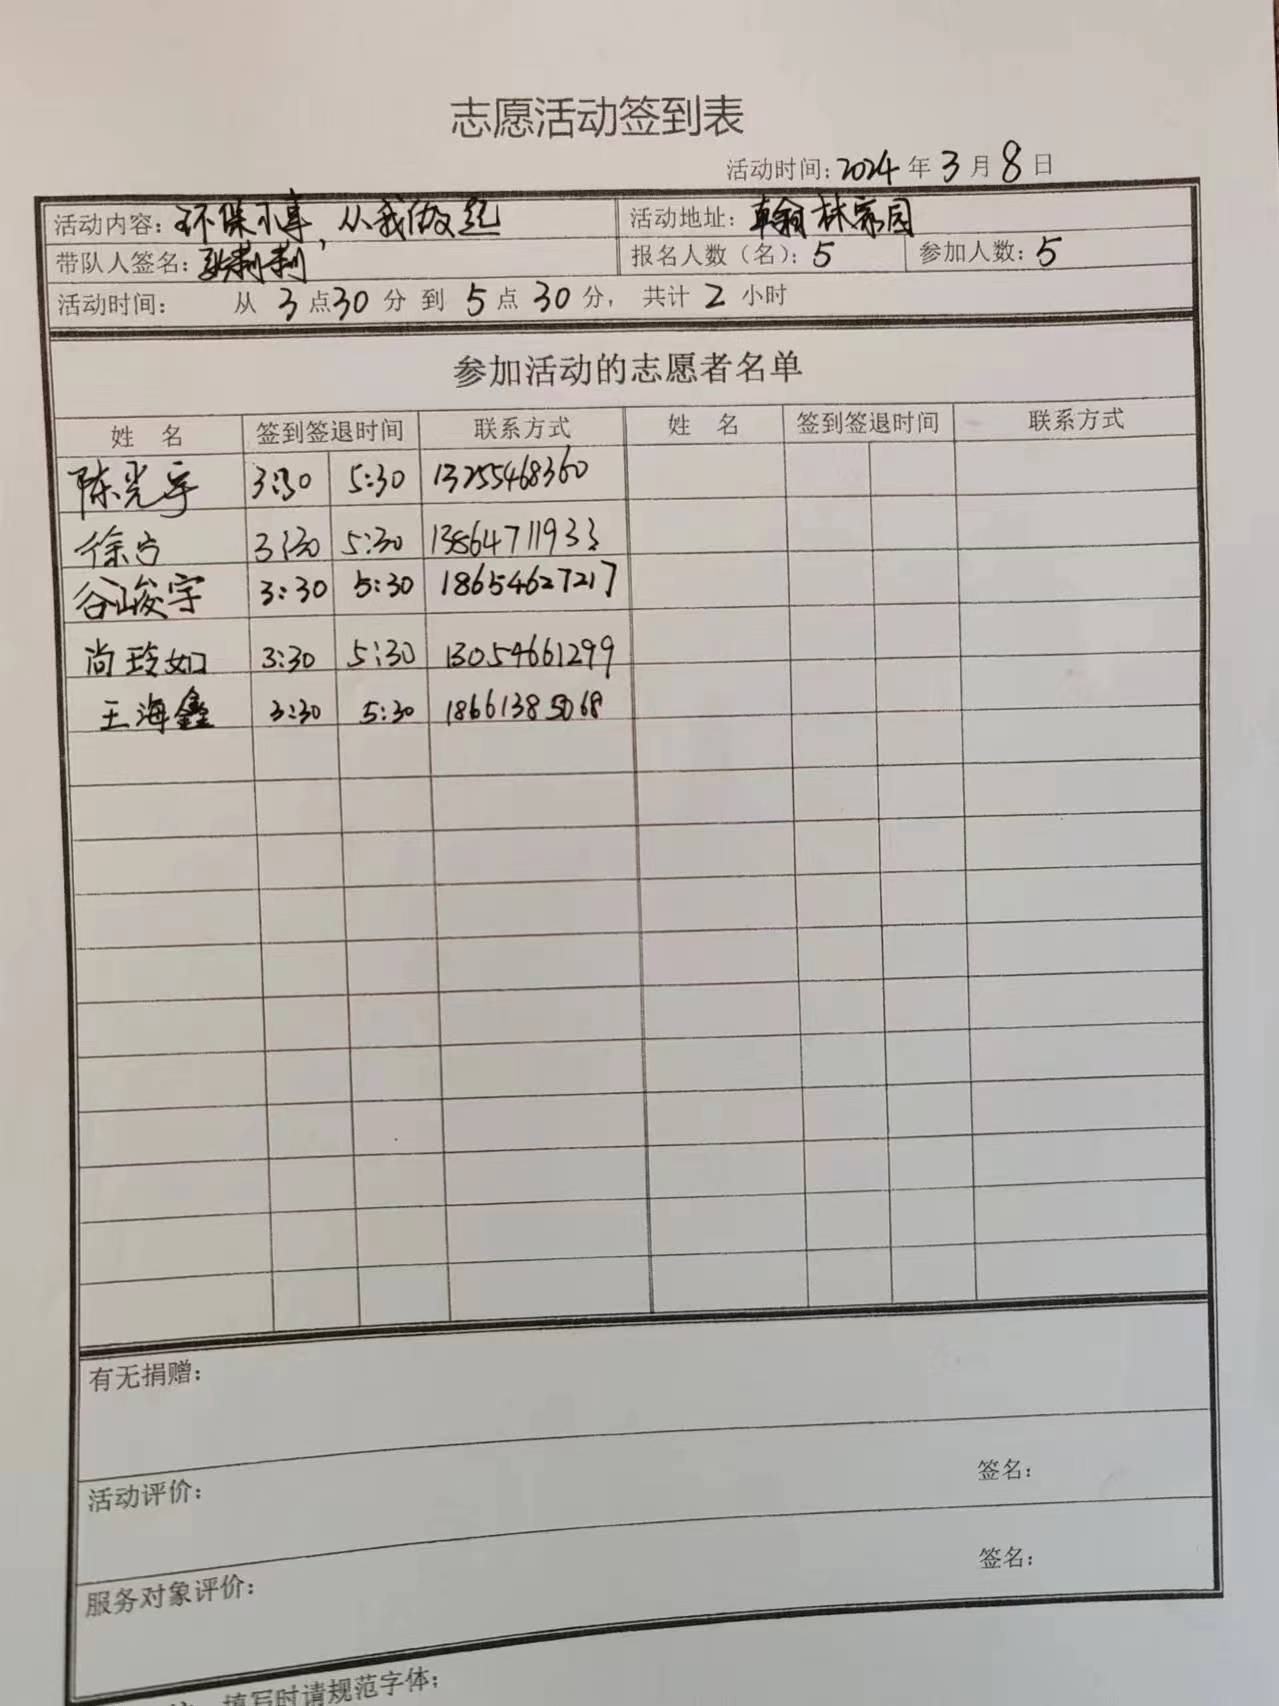 志愿活动签到表
活动时间：2024年3月8日
活动内容：环保小事，从我做起 活动地址：翰林家园
带队人签名：张莉莉 报名人数（名）：5 参加人数：5
活动时间： 从 3 点 30 分 到 5 点 30 分， 共计 2 小时
参加活动的志愿者名单
姓 名 签到签退时间 联系方式 姓 名 签到签退时间 联系方式
陈光宇 3:30 5:30 13255468360
徐方 3:30 5:30 13864711933
谷峻宇 3:30 5:30 18654627217
尚玲如 3:30 5:30 13054661299
王海鑫 3:30 5:30 18661385068
有无捐赠：
签名：
活动评价：
签名：
服务对象评价：
填写时请规范字体；